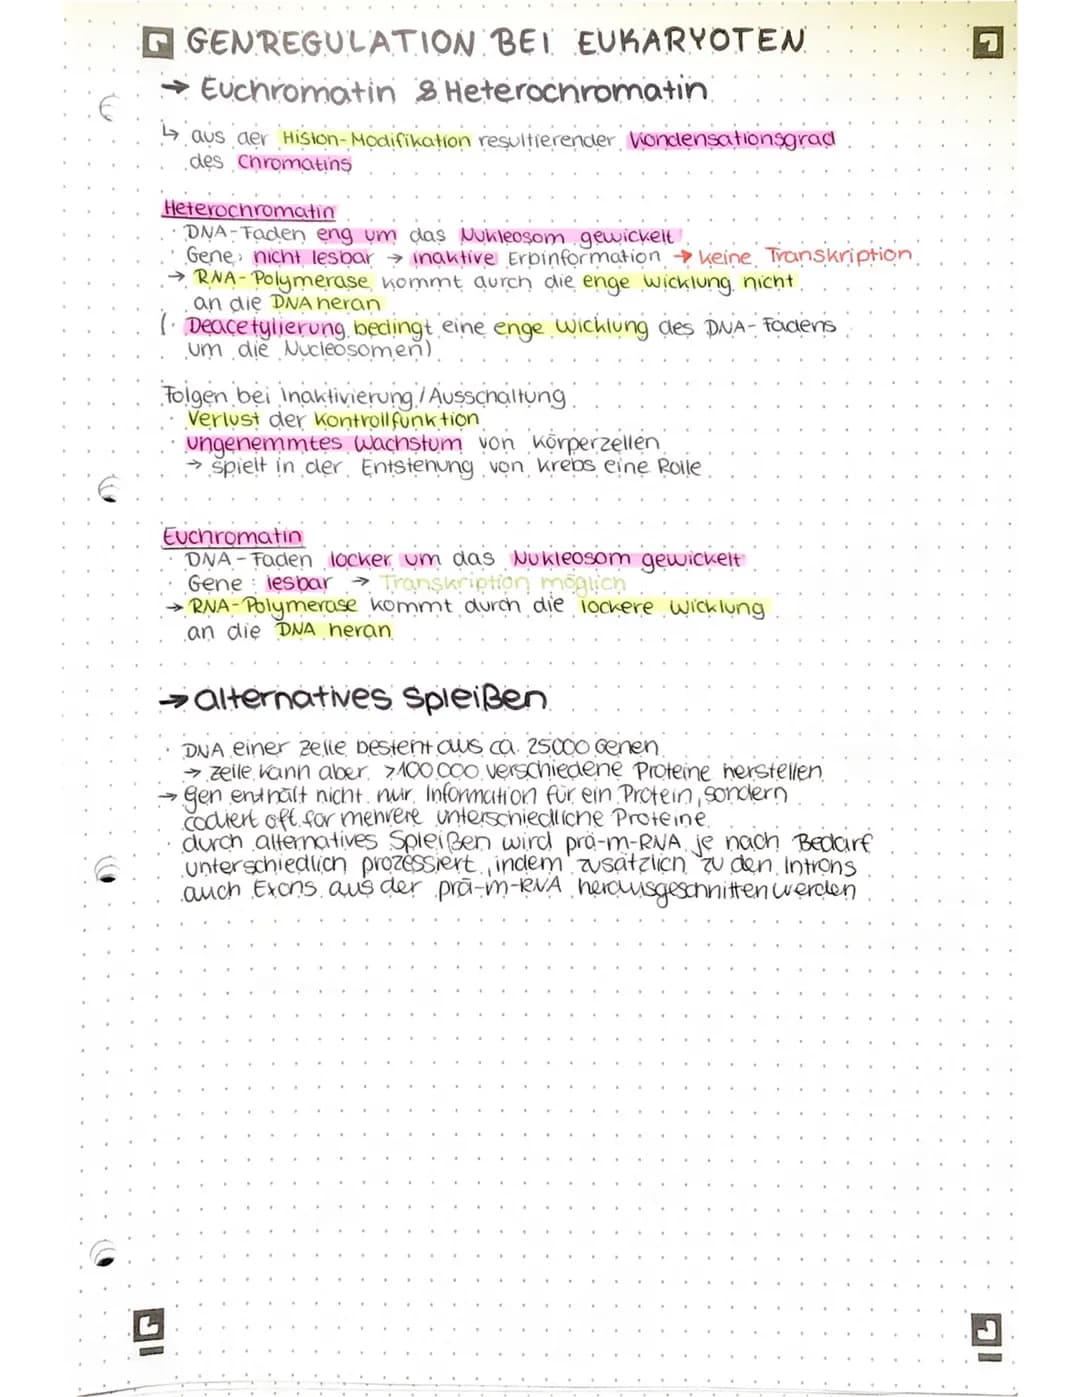 GENREGULATION BEI EUKARYOTEN
→ Euchromatin & Heterochromatin
↳ aus der Histon-Modifikation resultierender Kondensationsgrad
des Chromatins
Heterochromatin
· DNA-Faden eng um das Nukleosom gewickelt
· Gene: nicht lesbar → inaktive Erbinformation → keine Transkription
→ RNA-Polymerase kommt durch die enge Wicklung nicht
an die DNA heran
(· Deacetylierung bedingt eine enge Wicklung des DNA-Fadens
um die Nucleosomen)
Folgen bei Inaktivierung/Ausschaltung
· Verlust der Kontrollfunktion
· ungehemmtes Wachstum von Körperzellen
→ spielt in der Entstehung von Krebs eine Rolle
Euchromatin
· DNA-Faden locker um das Nukleosom gewickelt
· Gene: lesbar → Transkription möglich
→ RNA-Polymerase kommt durch die lockere Wicklung
an die DNA heran
→ alternatives Spleißen
· DNA einer Zelle besteht aus ca. 25000 Genen
→ Zelle kann aber >100000 verschiedene Proteine herstellen
→ Gen enthält nicht nur Information für ein Protein, sondern
codiert oft für mehrere unterschiedliche Proteine
· durch alternatives Spleißen wird prä-m-RNA je nach Bedarf
unterschiedlich prozessiert, indem zusätzlich zu den Introns
auch Exons aus der prä-m-RNA herausgeschnitten werden